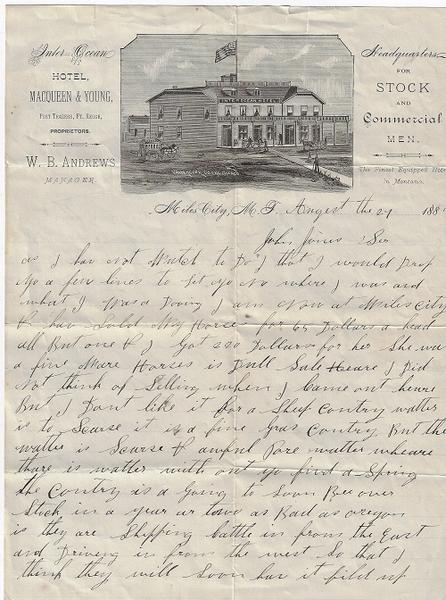 Inter Ocean
HOTEL,
MACQUEEN & YOUNG,
POST TRADERS, FT. KEOGH,
PROPRIETORS.
W. B. ANDREWS
MANAGER.
INTER OCEAN HOTEL
Headquarters
FOR
STOCK
AND
Commercial
MEN.
The Finest Equipped Hotel
in Montana.
Miles City, M. T. Augest the 29 188
John Jones Sir
as I hav Not Mutch to Do I that I would Drop
yo a few lines to let yo No where I was and
what I Was a Doing I am Now at Miles City
& hav Sold My Horses for 65 Dollars a head
all But one & I Got 200 Dollars for her She was
a fine Mare Horses is Dull Sale Heare I Did
Not think of Selling when I Came out heare
But I Dont like it for a Sheep Contry watter
is to Scarse it is a fine Gras Contry But the
watter is Scarse & awful Pore watter wheare
thare is watter with out yo find a Spring
the Contry is a Going to Soon Bee over
Stock in a year or two as Bad as oregon
is they are Shipping Cattle in from the East
and Driveng in from the west So that I
think they will Soon hav it fild up